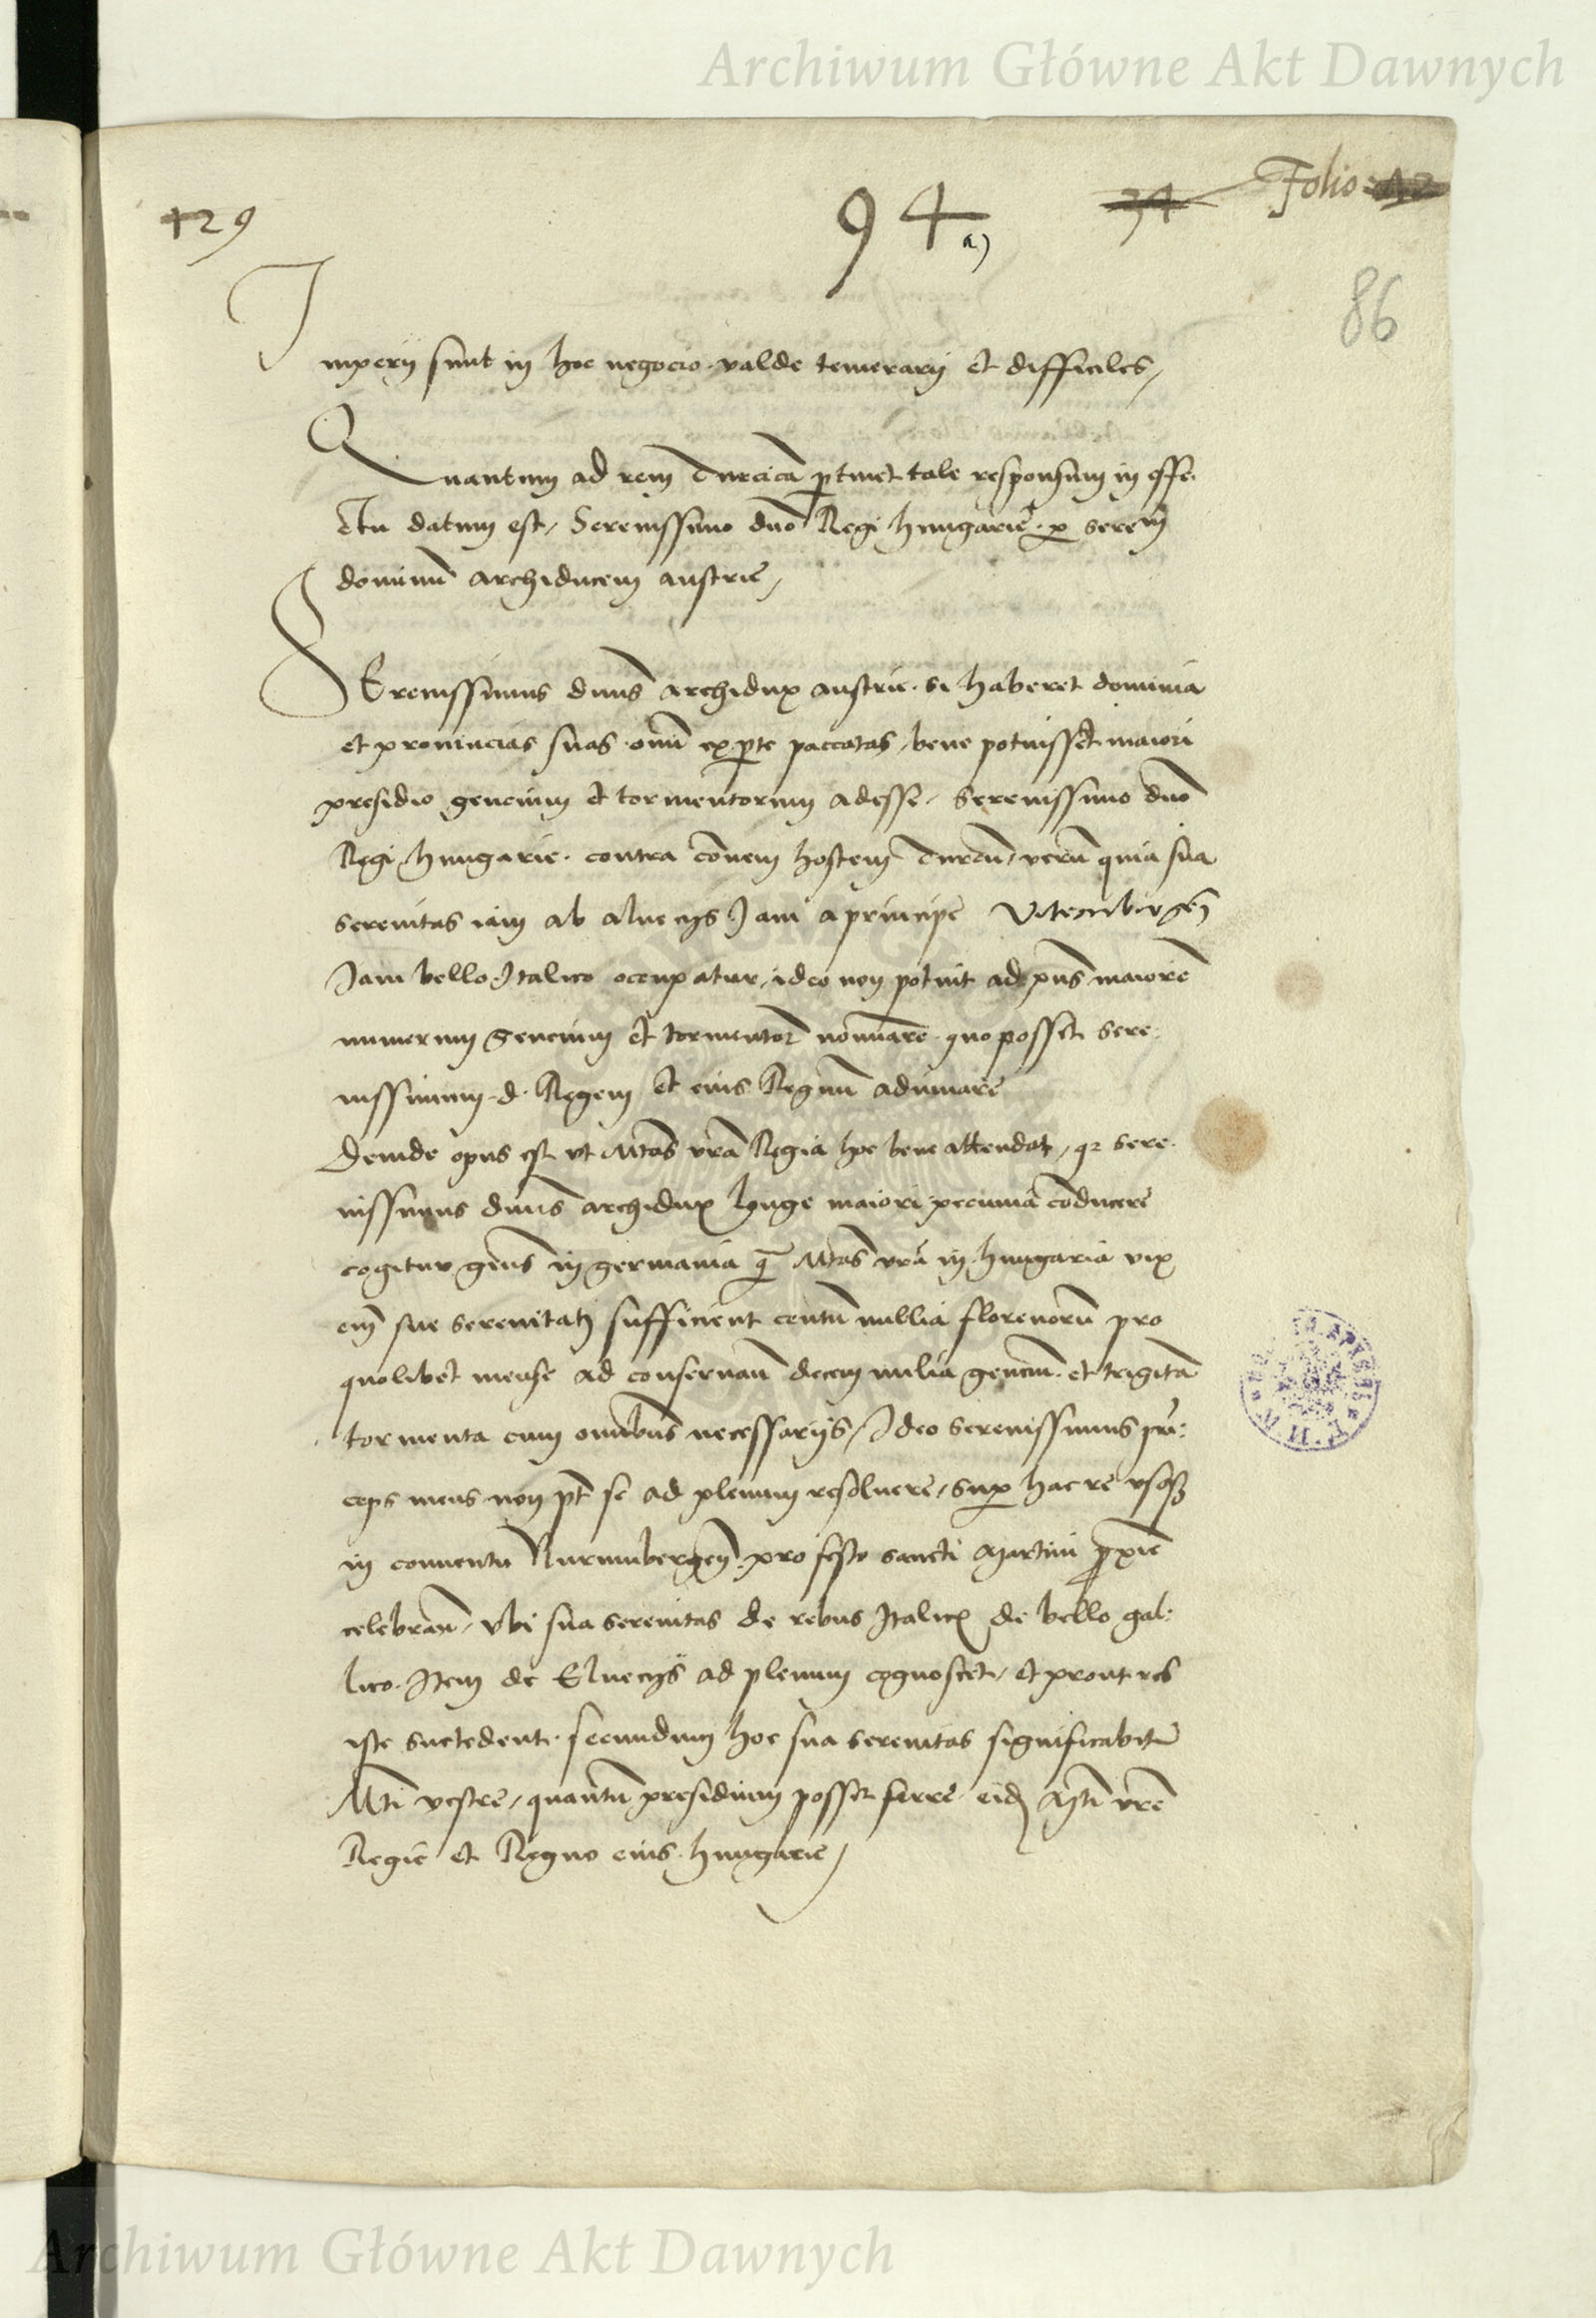 Archiwum Główne Akt Dawnych
Folio
129 94 a) 34
86
Imperij sunt in hoc negocio valde temerarij et difficiles,
Quantum ad rem Turcicā ꝑtinet tale responsum in effe
ctu datum est, Serenissimo dn̄o Regi hungarie ꝑ sereni
dominū archiducem austrie,
SErenissimus dn̄us archidux austrie si haberet dominia
et prouincias suas omī ex ꝑte paccatas, bene potuisset maiori
presidio gencium et tormentorum adesse, Serenissimo dn̄o
Regi hungarie contra cōem hostem Turcū, verū quia sua
serenitas iam ab aluecijs Jam a principe Vitembirgeñ
Jam bello Italico occupatur, ideo non potuit ad p̄ns maiorē
numerum gencium et tormentoꝝ nominare quo posset Sere
nissimum d. Regem et eius Regnū adiuuare
Deinde opus est vt Mtas vrā Regia hoc bene attendat, qz sere
nissimus dn̄us archidux longe maiori pecunia conducere
cogitur gentes in germania q̄ Mtas vrā in hungaria vix
em̄ sue serenitati sufficient centū millia florenorū pro
quolibet mense ad conseruan̄ decem milia genciū et triginta
tormenta cum omībus necessarijs, Ideo serenissimus prin
ceps meus non pt̄ se ad plenum resoluere, suꝑ hac re vsqꝫ
in conuentu Nurmbergeñ pro festo sancti Martini ꝓxīe
celebran̄, vbi sua serenitas de rebus Italicis de bello gal
lico Item de Eluecijs ad plenum cognoscet, et prout res
iste succedent secundum hoc sua serenitas significabit
Mti vestre, quantū presidium posset ferre eidē Mti vrē
Regie et Regno eius hungarie,
Archiwum Główne Akt Dawnych